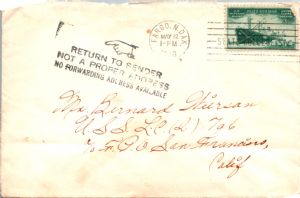 FARGO, N.DAK.
MAY 12
1-PM
RETURN TO SENDER
NOT A PROPER ADDRESS
NO FORWARDING ADDRESS AVAILABLE
Mr Bernard
U S S L C (L) 796
c/o F.P.O San Francisco,
Calif